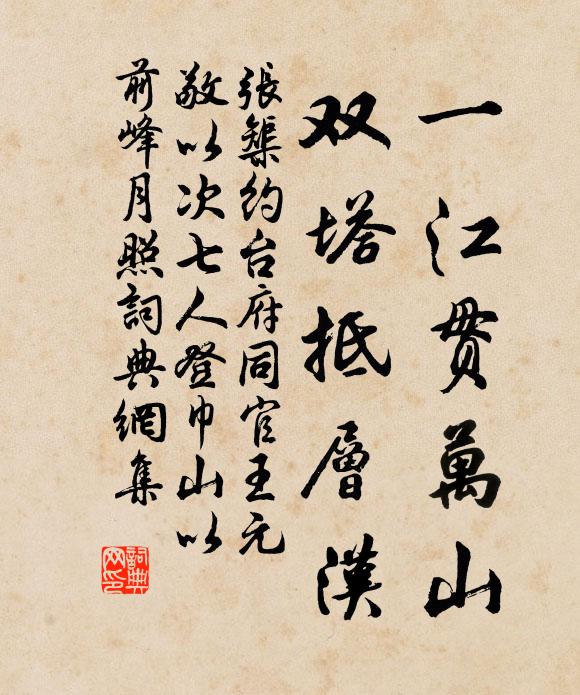 一江贯萬山
双塔抵層漢
張榘約台府同官王元
敬以次七人登巾山以
前峰月照詞典網集
詞典
网印